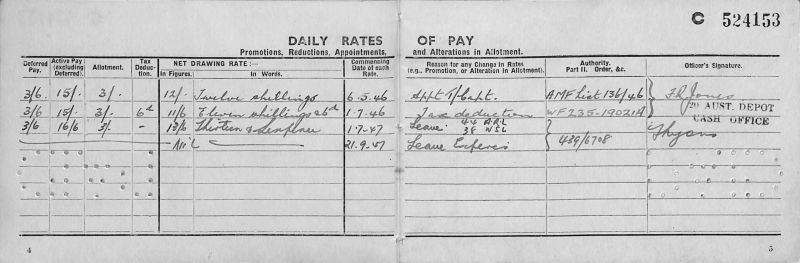 C 524153
DAILY RATES OF PAY
Promotions, Reductions, Appointments, and Alterations in Allotment.
Deferred Pay. Active Pay (excluding Deferred). Allotment. Tax Deduc- tion. NET DRAWING RATE:— In Figures. In Words. Commencing Date of each Rate. Reason for any Change in Rates (e.g., Promotion, or Alteration in Allotment). Authority. Part II. Order, &c. Officer's Signature.
3/6 15/- 3/- 12/- Twelve shillings 6.5.46 Appt T/Capt. AMF List 136/46 Jones
3/6 15/- 3/- 6d 11/6 Eleven shillings & 6d 1.7.46 Tax deduction WF235-19021A
20 AUST. DEPOT
CASH OFFICE
3/6 16/6 3/- - 13/6 Thirteen & Sixpence 1.7.47 Leave 44 ARL
38 WSL
Nil 21.9.47 Leave Expires 439/6708
4 5